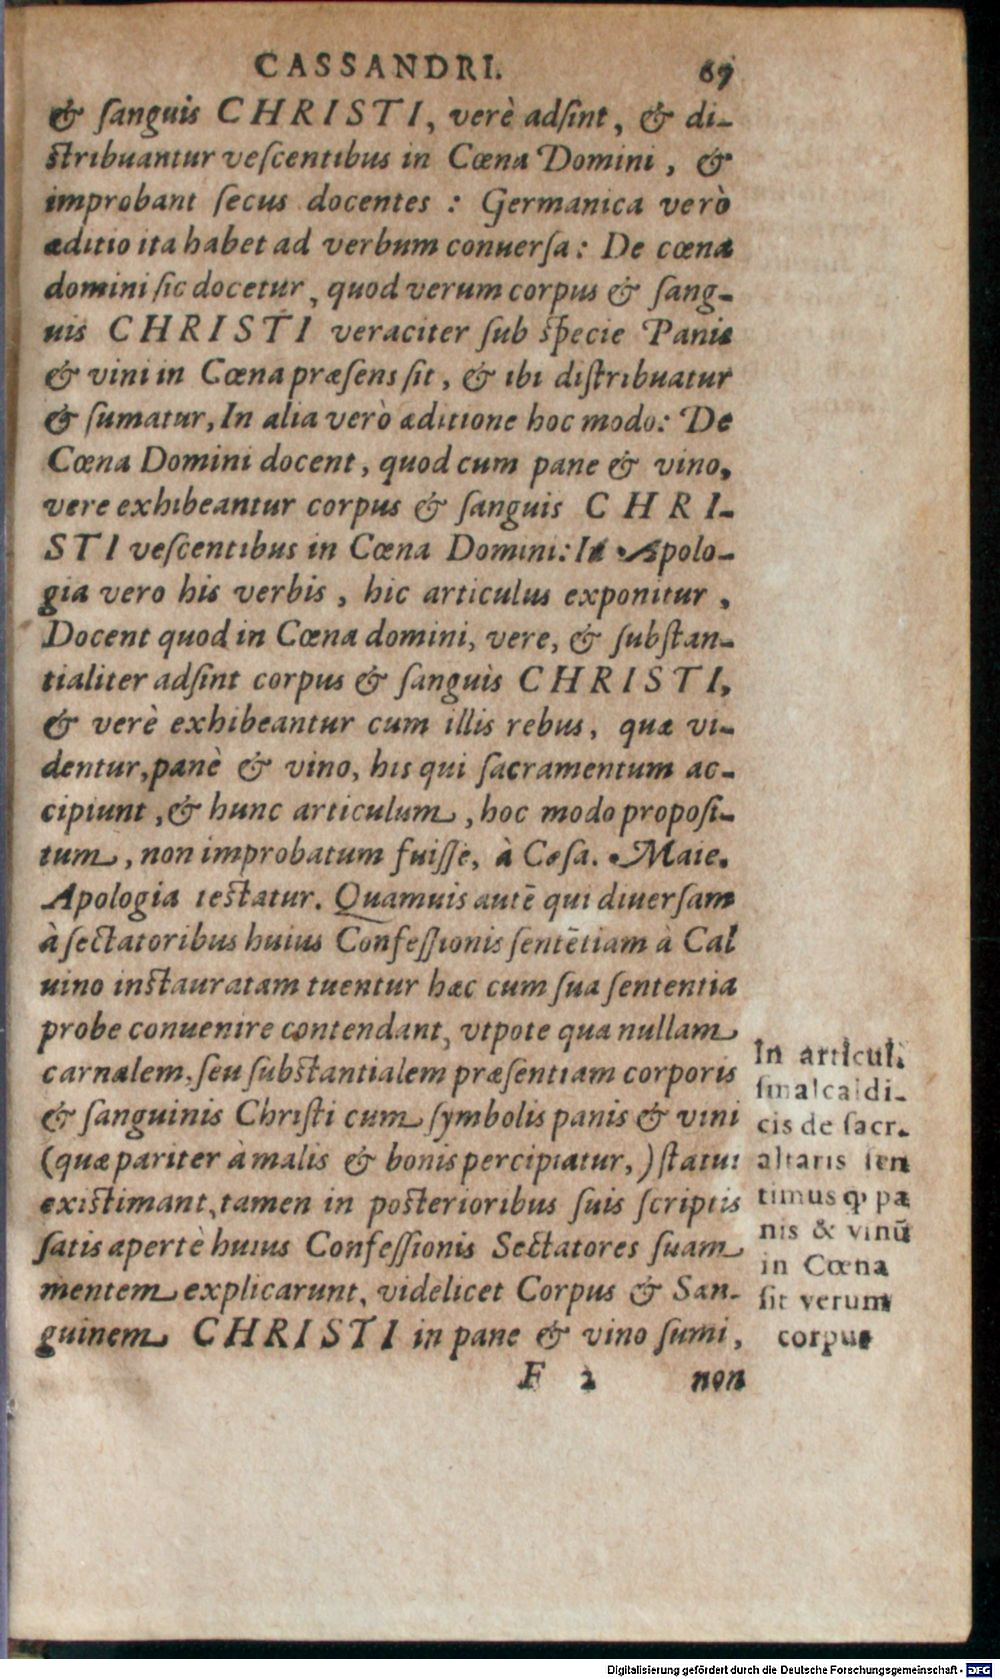 CASSANDRI. 67
& ſanguis CHRISTI, verè adſint, & di-
ſtribuantur veſcentibus in Cœna Domini, &
improbant ſecus docentes : Germanica verò
æditio ita habet ad verbum conuerſa: De cœna
domini ſic docetur, quod verum corpus & ſang-
uis CHRISTI veraciter ſub ſpecie Panis
& vini in Cœna præſens ſit, & ibi diſtribuatur
& ſumatur, In alia verò æditione hoc modo: De
Cœna Domini docent, quod cum pane & vino,
vere exhibeantur corpus & ſanguis CHRI-
STI veſcentibus in Cœna Domini: In Apolo-
gia vero his verbis, hic articulus exponitur,
Docent quod in Cœna domini, vere, & ſubſtan-
tialiter adſint corpus & ſanguis CHRISTI,
& verè exhibeantur cum illis rebus, quæ vi-
dentur, panè & vino, his qui ſacramentum ac-
cipiunt, & hunc articulum, hoc modo propoſi-
tum, non improbatum fuiſſe, à Cæſa. Maie.
Apologia teſtatur. Quamuis autē qui diuerſam
à ſectatoribus huius Confeſſionis ſentētiam à Cal
uino inſtauratam tuentur hæc cum ſua ſententia
probe conuenire contendant, vtpote qua nullam
carnalem, ſeu ſubſtantialem præſentiam corporis
& ſanguinis Chriſti cum ſymbolis panis & vini
(quæ pariter à malis & bonis percipiatur,) ſtatui
exiſtimant, tamen in poſterioribus ſuis ſcriptis
ſatis apertè huius Confeſſionis Sectatores ſuam
mentem explicarunt, videlicet Corpus & San-
guinem CHRISTI in pane & vino ſumi,
F 2 non
In articuli
ſmalcaldi-
cis de ſacr.
altaris ſen
timus ꝙ pa
nis & vinū
in Cœna
ſit verum
corpus
Digitalisierung gefördert durch die Deutsche Forschungsgemeinschaft - DFG